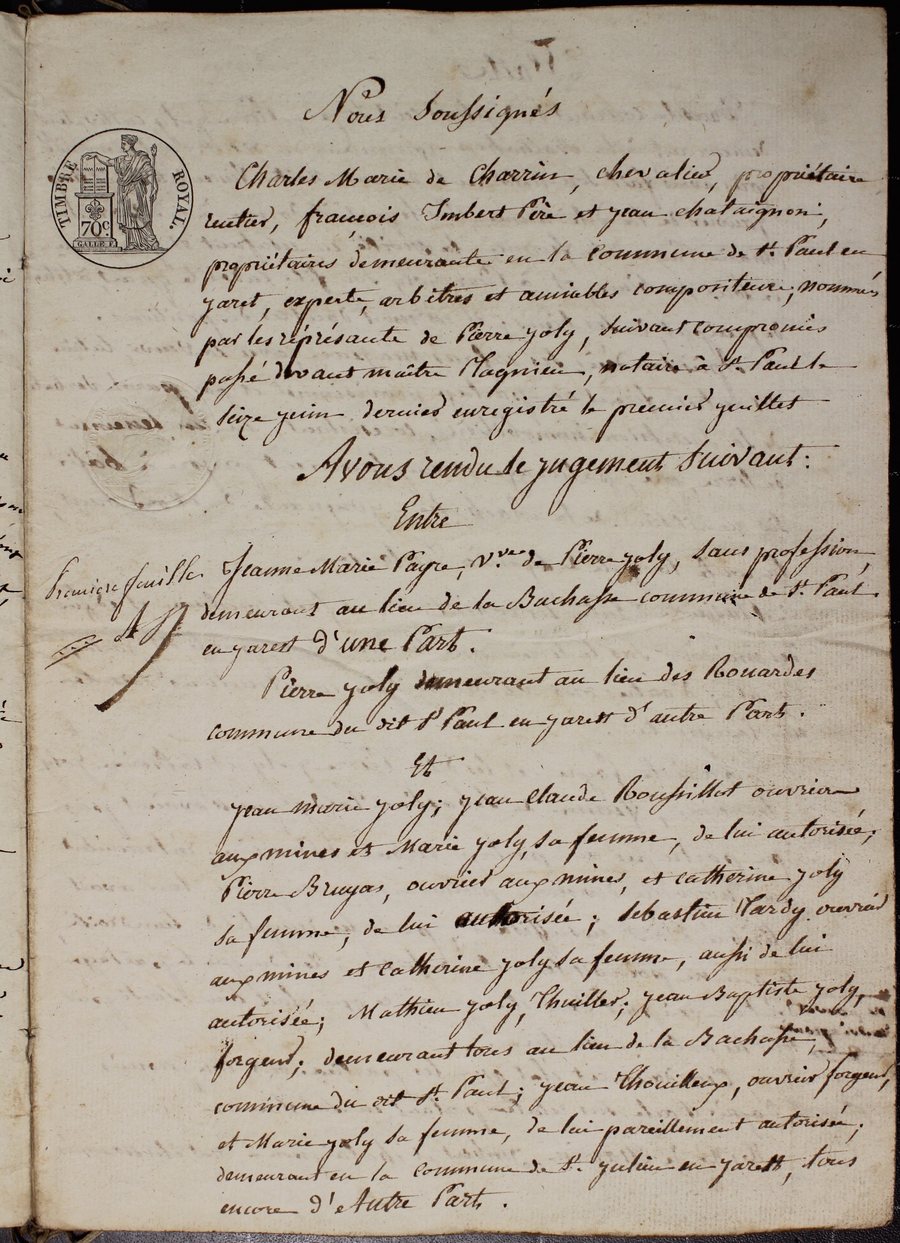 Nous Soussignés
TIMBRE ROYAL.
70c.
GALLE F.
Charles Marie de Charrin, chevalier, propriétaire
rentier, françois Imbert Père et jean chataignon,
propriétaires demeurants en la commune de St. Paul en
jaret, experts, arbitres et amiables compositeurs, nommés
par les réprésants de Pierre joly, suivant compromis
passé devant maître Magnien, notaire à St. Paul le
seize juin dernier enregistré le premier juillet
Avons rendu le jugement suivant:
Entre
Première feuille
Jeanne Marie Payre, Vve. de Pierre joly, sans profession,
demeurant au lieu de la Bachasse commune de St. Paul
en jarest d'une Part.
Pierre joly demeurant au lieu des Rouardes
commune du dit St Paul en jarest d'autre Part.
Et
jean marie joly; jean Claude Roussillot ouvrier
aux mines et Marie joly, sa femme, de lui autorisée;
Pierre Bruyas, ouvrier aux mines, et catherine joly
sa femme, de lui autorisée; sébastien Tardy ouvrier
aux mines et catherine joly sa femme, aussi de lui
autorisée; Mathieu joly, Thuillier; jean Baptiste joly,
forgeur; demeurant tous au lieu de la Bachasse,
commune du dit St. Paul; jean Thouilleux, ouvrier forgeur,
et Marie joly sa femme, de lui pareillement autorisée;
demeurant en la commune de St. julien en jarest, tous
encore d'Autre Part.